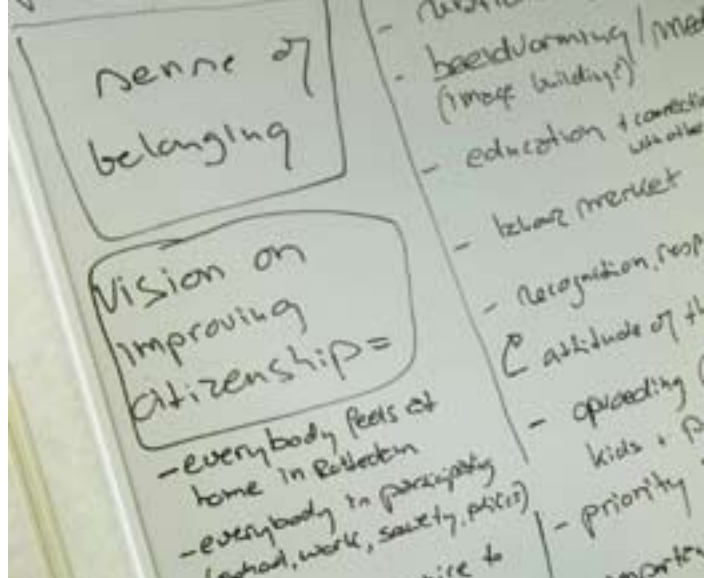 sense of
belonging
Vision on
improving
citizenship =
- everybody feels at
home in Rotterdam
- everybody in participating
(school, work, society, politics)
to
- beeldvorming/
(image building?)
- education +
with other
- labour market
- recognition,
attitude of
- opvoeding (
kids +
- priority